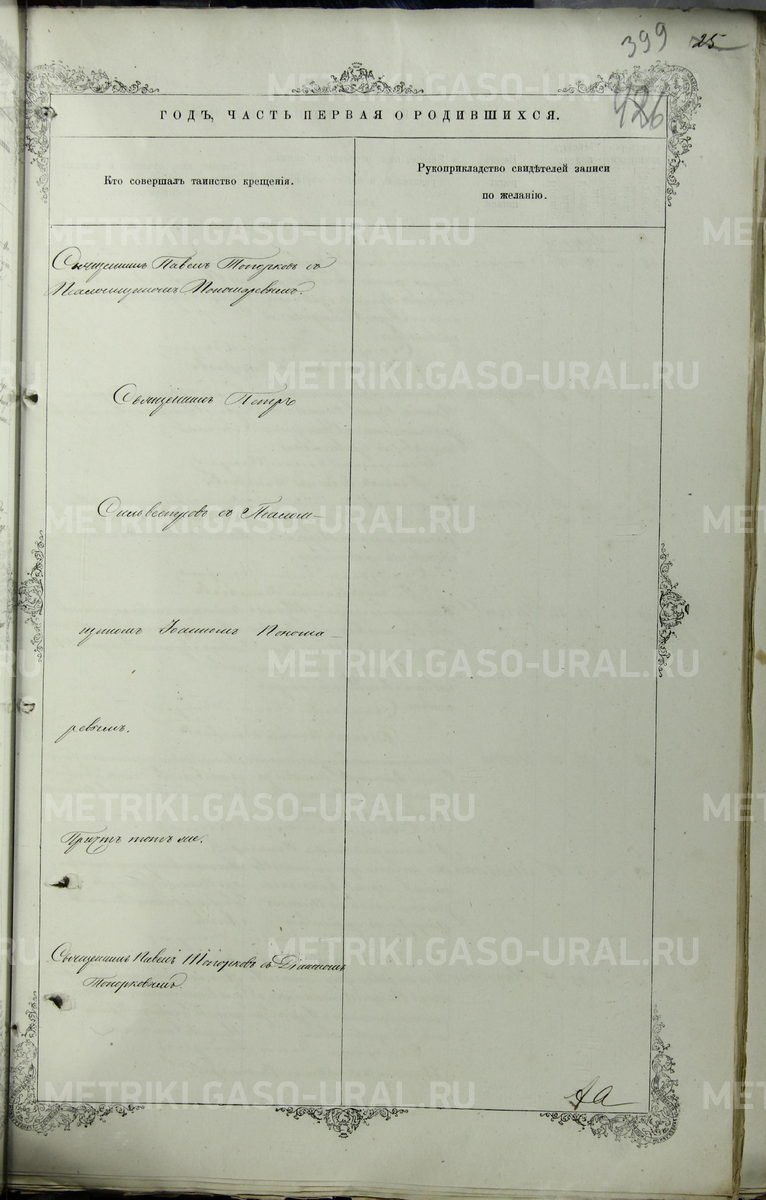 399 25
426
ГОДЪ, ЧАСТЬ ПЕРВАЯ О РОДИВШИХСЯ.
Кто совершалъ таинство крещенія.
Рукоприкладство свидѣтелей записи
по желанію.
Священникъ Павелъ Топорковъ съ
Псаломщикомъ Пономаревымъ.
Священникъ Петръ
Сильвестровъ съ Псалом-
щикомъ Іоанномъ Понома-
ревымъ.
Причтъ тотъ же.
Священникъ Павелъ Топорковъ съ Діакономъ
Топорковымъ.
METRIKI.GASO-URAL.RU